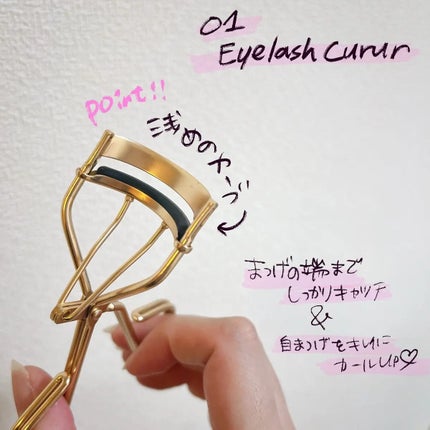 01
Eyelash Cururr
point!!
浅めのカーブ
まつげの端まで
しっかりキャッチ
&
自まつげをキレイに
カールUP♡